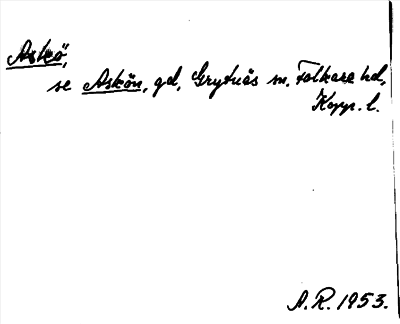 Askö,
se Askön, gd, Grytnäs sn, Folkare hd,
Kopp. l.
A.R. 1953.